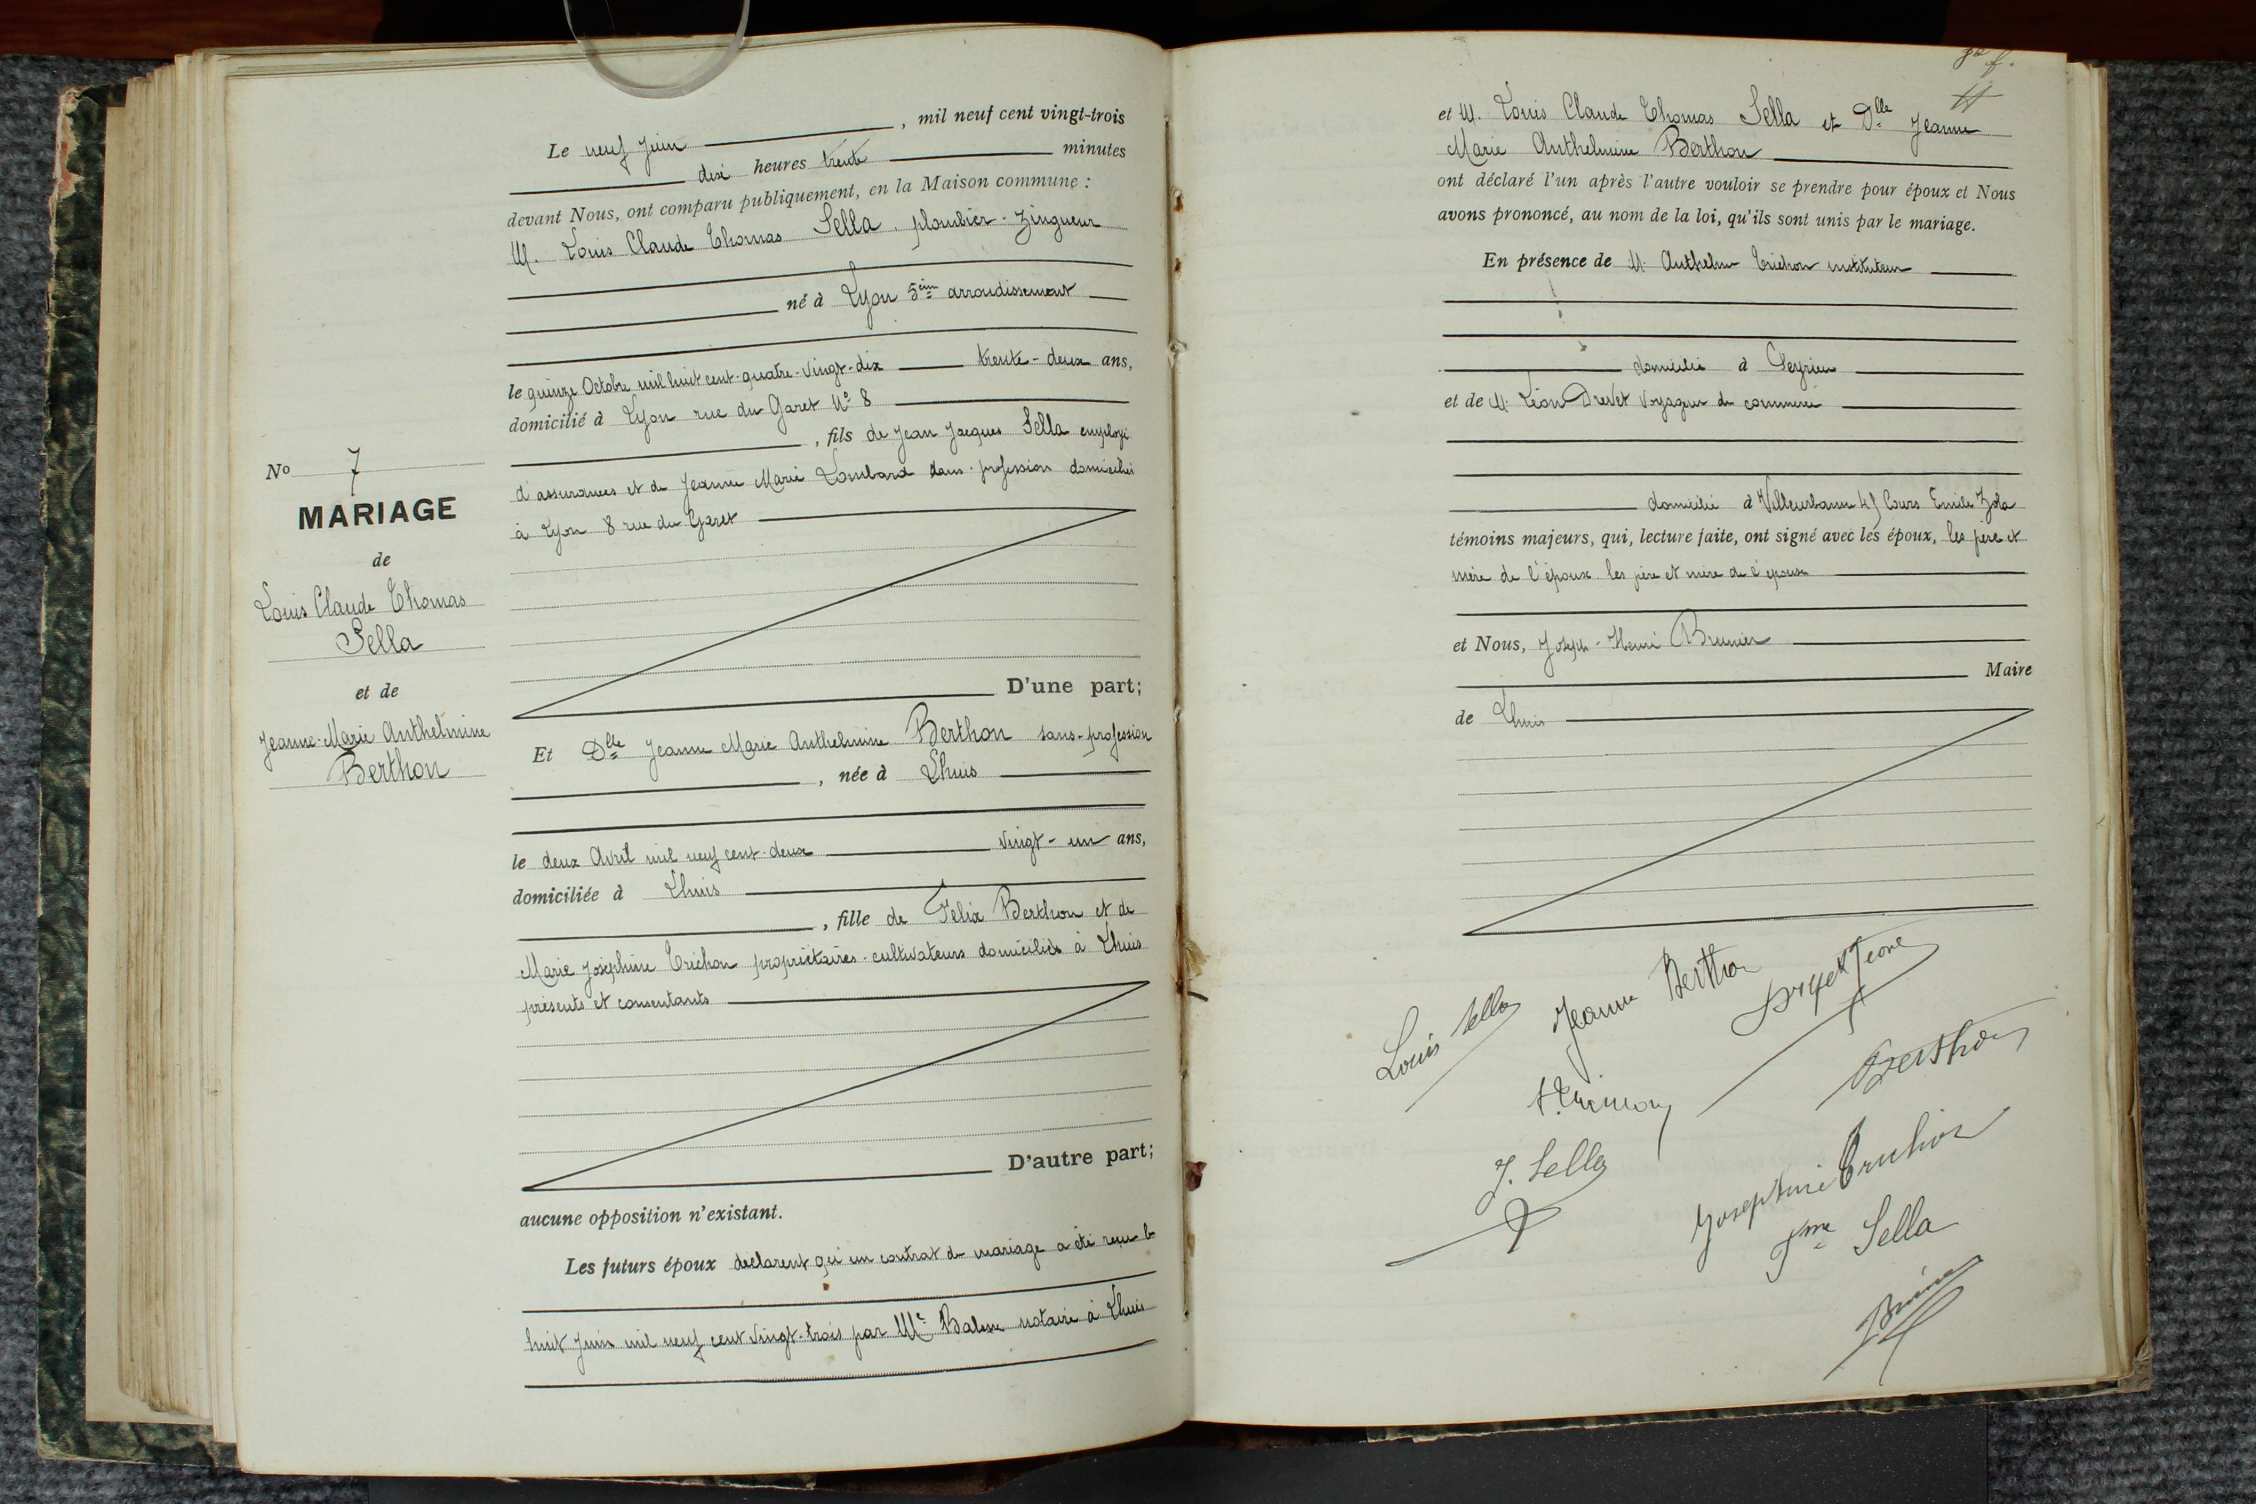 Le neuf Juin , mil neuf cent vingt-trois
dix heures trente minutes
devant Nous, ont comparu publiquement, en la Maison commune :
M. Louis Claude Thomas Sella. plombier-Zingueur
né à Lyon 5ème arrondissement
le quinze Octobre mil huit cent-quatre-vingt-dix trente-deux ans,
domicilié à Lyon rue du Garet No 8
, fils de Jean Jacques Sella employé
d'assurances et de Jeanne Marie Lombard sans-profession domiciliés
à Lyon 8 rue du Garet
D'une part;
No 7
MARIAGE
de
Louis Claude Thomas
Sella
et de
Jeanne-Marie Anthelmine
Berthon
Et Dlle Jeanne Marie Anthelmine Berthon sans-profession
, née à Lhuis
le deux Avril mil neuf cent-deux vingt-un ans,
domiciliée à Lhuis
, fille de Félix Berthon et de
Marie Joséphine Trichon propriétaires-cultivateurs domiciliés à Lhuis
présents et consentants
D'autre part;
aucune opposition n'existant.
Les futurs époux déclarent qu'un contrat de mariage a été reçu le
huit Juin mil neuf cent vingt-trois par Me notaire à Lhuis
et M. Louis Claude Thomas Sella et Dlle Jeanne
Marie Anthelmine Berthon
ont déclaré l'un après l'autre vouloir se prendre pour époux et Nous
avons prononcé, au nom de la loi, qu'ils sont unis par le mariage.
En présence de M. Anthelme Trichon instituteur
domicilié à Peyrieu
et de M. Léon Drevet voyageur de commerce
domicilié à Villeurbanne Cours Emile Zola
témoins majeurs, qui, lecture faite, ont signé avec les époux, les père et
mère de l'époux les père et mère de l'épouse
et Nous, Joseph-Henri Brunier
Maire
de Lhuis
Louis Sella
Jeanne Berthon
Berthon
J. Sella
Joséphine Trichon
Sella